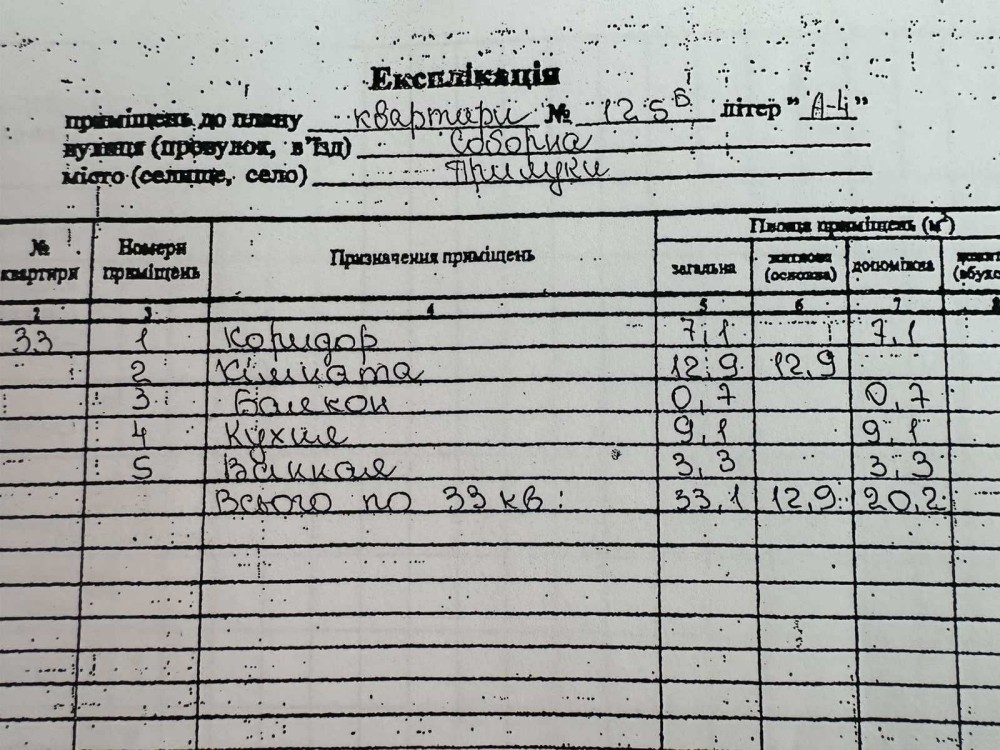 Експлікація
приміщень до плану квартири № 125Б літер "А-4"
вулиця (провулок, в'їзд) Соборна
місто (селище, село) Прилуки
№ квартири Номери приміщень Призначення приміщень Площа приміщень (м²)
загальна житлова (основна) допоміжна
2 3 4 5 6 7 8
33 1 Коридор 7,1 7,1
2 Кімната 12,9 12,9
3 Балкон 0,7 0,7
4 Кухня 9,1 9,1
5 Ванная 3,3 3,3
Всього по 33 кв: 33,1 12,9 20,2